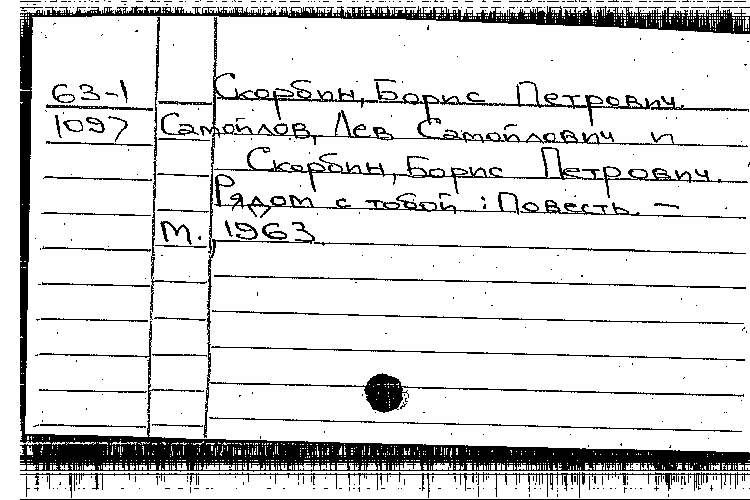 63-1 Скорбин, Борис Петрович.
1097 Самойлов, Лев Самойлович и
Скорбин, Борис Петрович.
Рядом с тобой : Повесть. —
М. 1963